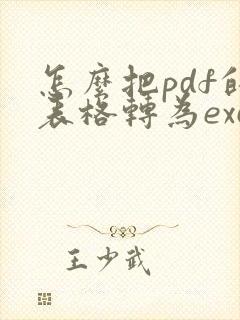 怎麼把pdf的
表格轉為exc
王少武